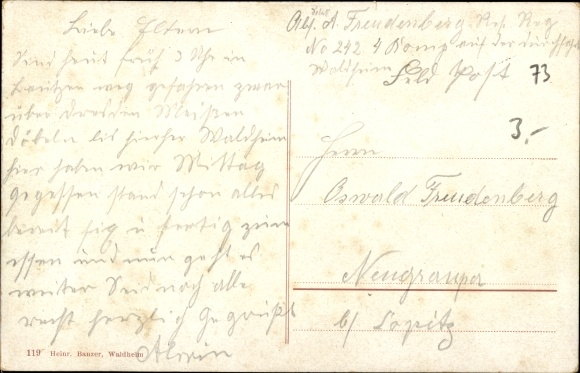 Liebe Eltern
Sind heut früh 3 Uhr in
Bautzen weg gefahren zwar
über Dresden Meißen
Döbeln bis hierher Waldheim
hier haben wir Mittag
gegessen stand schon alles
bereit fig u fertig zum
essen und nun geht es
weiter Seid noch alle
recht herzlich Gegrüßt
Alwin
Abs. A. Freudenberg Res. Reg
No 242 4 Komp auf der durchfahrt
Waldheim
Feld Post
73
3.-
Herrn
Oswald Freudenberg
Neugraupa
b/ Lopitz
119 Heinr. Banzer, Waldheim